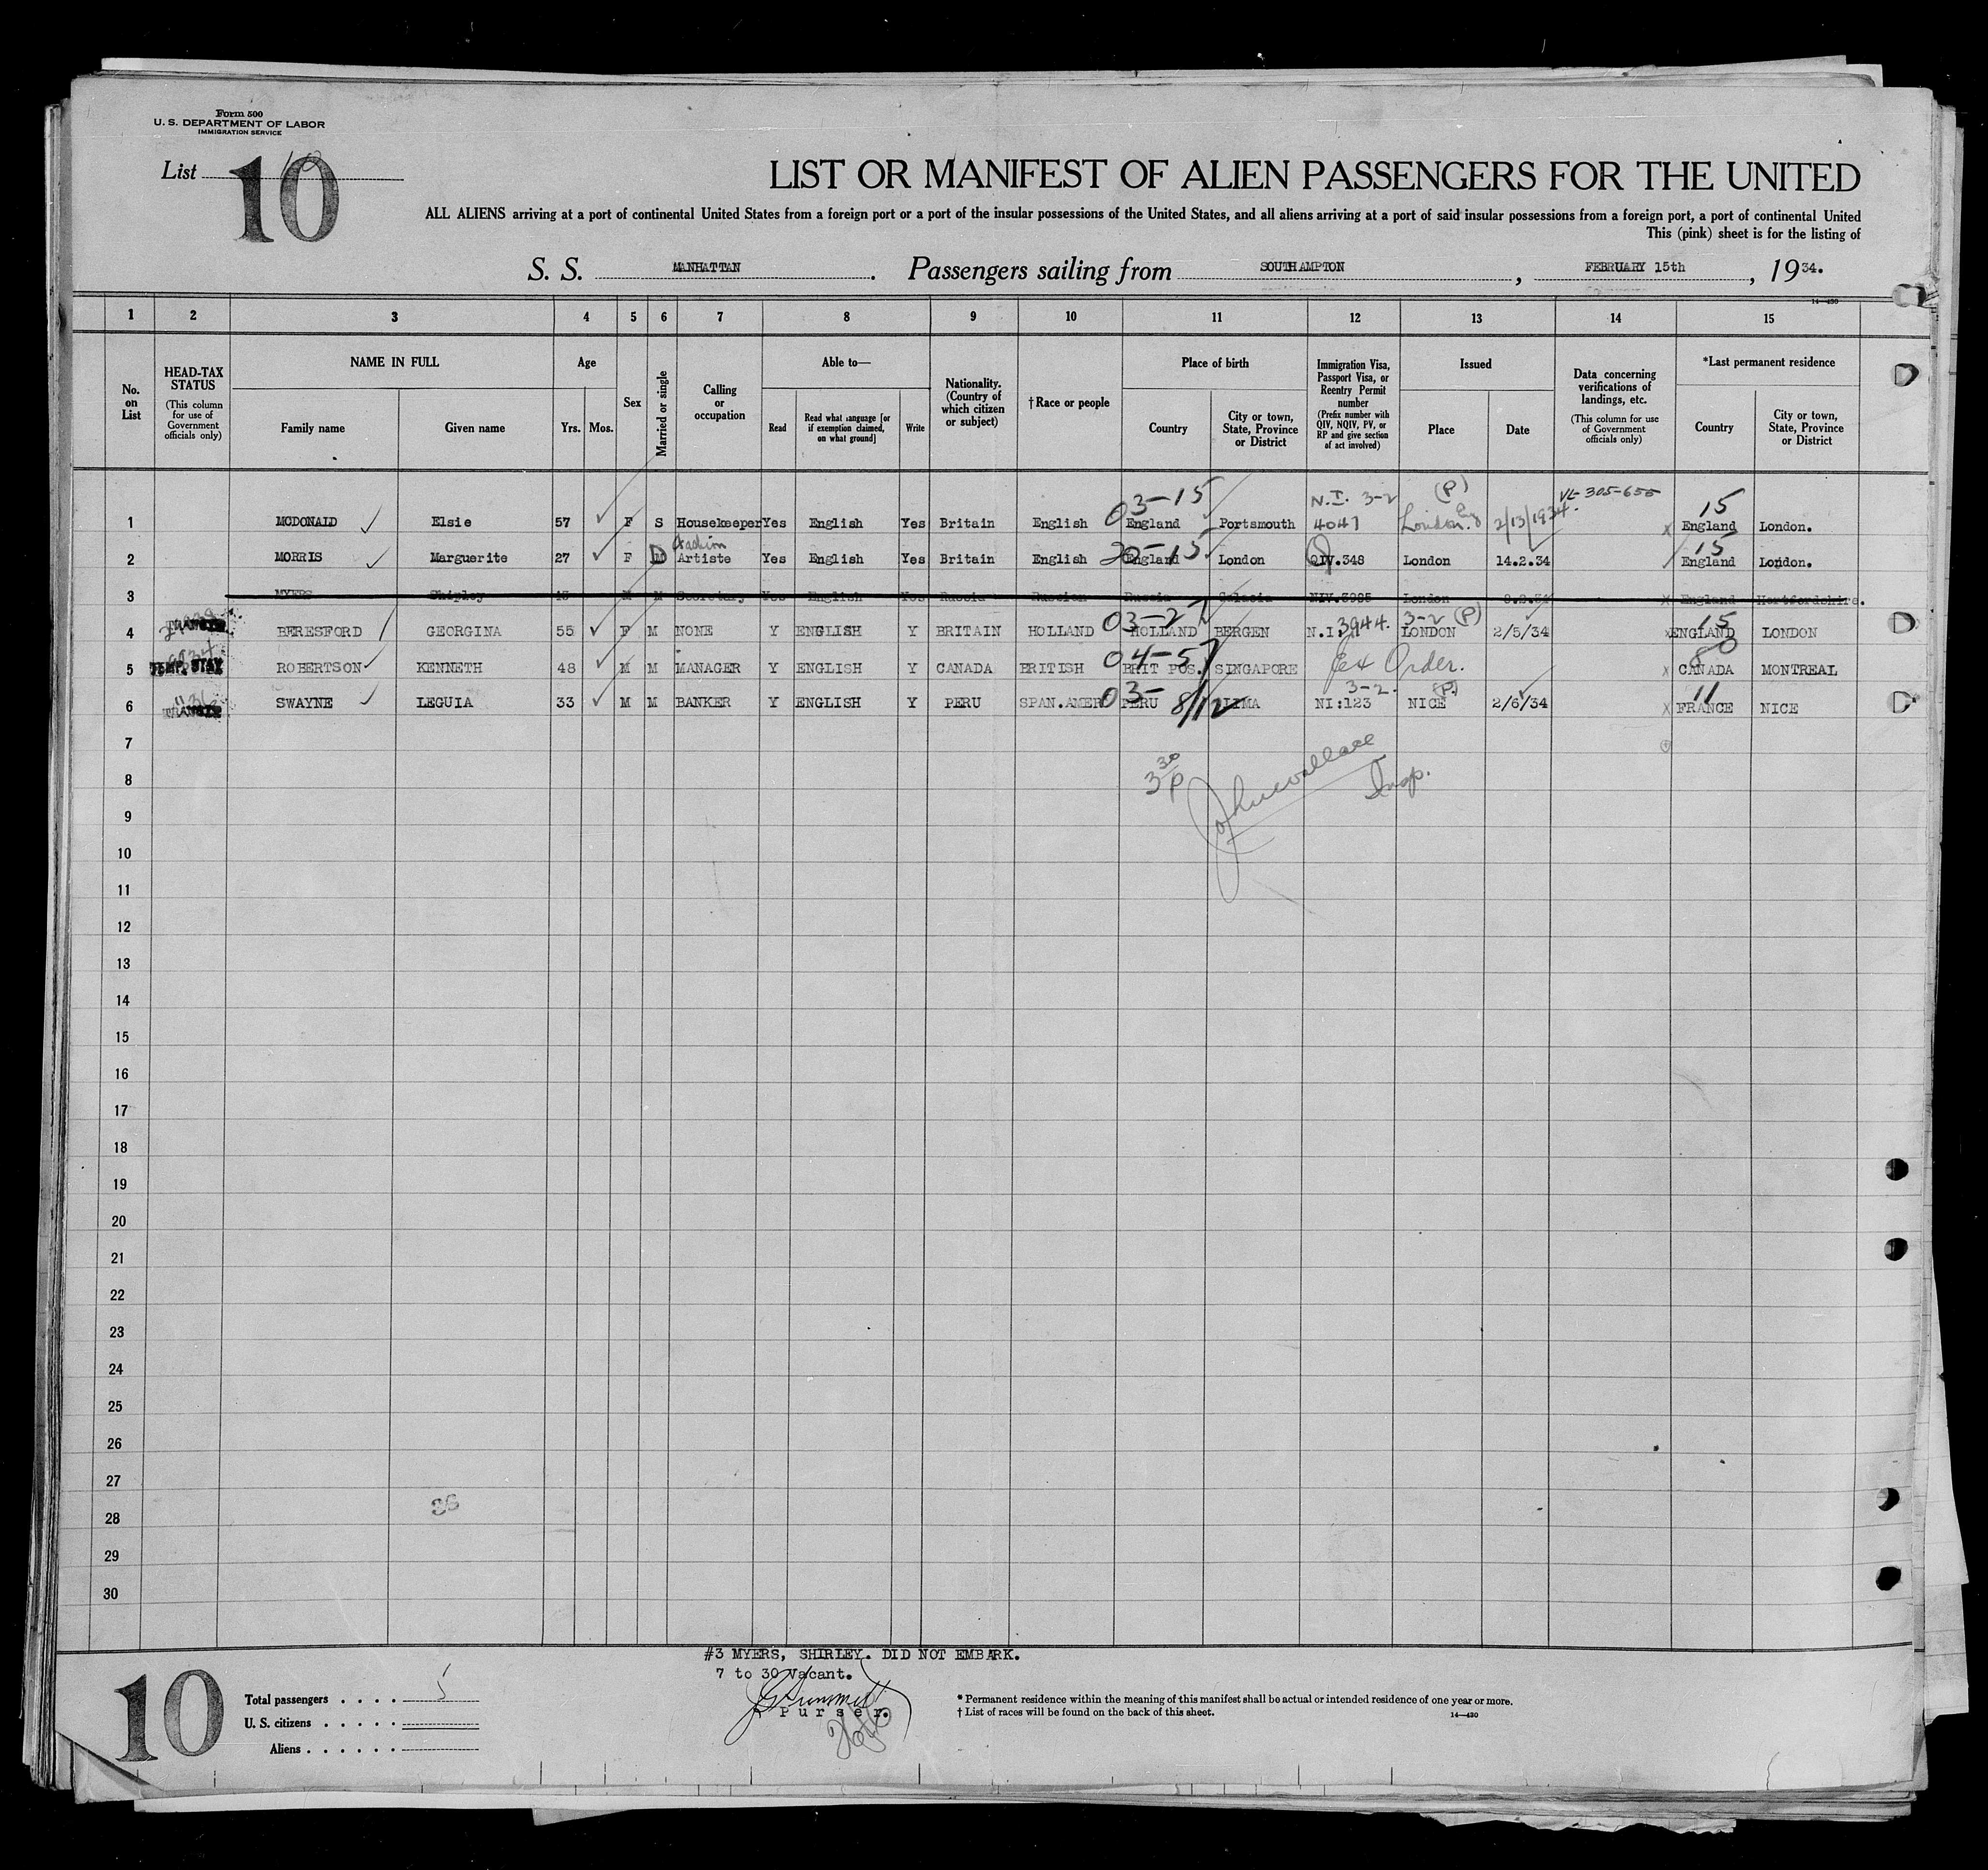 Form 500
U. S. DEPARTMENT OF LABOR
IMMIGRATION SERVICE
List 10
10
LIST OR MANIFEST OF ALIEN PASSENGERS FOR THE UNITED
ALL ALIENS arriving at a port of continental United States from a foreign port or a port of the insular possessions of the United States, and all aliens arriving at a port of said insular possessions from a foreign port, a port of continental United
This (pink) sheet is for the listing of
S. S. MANHATTAN. Passengers sailing from SOUTHAMPTON, FEBRUARY 15th, 19 34.
14—430
1 2 3 4 5 6 7 8 9 10 11 12 13 14 15
No. on List
HEAD-TAX STATUS
(This column for use of Government officials only)
NAME IN FULL
Family name Given name
Age
Yrs. Mos.
Sex
Married or single
Calling or occupation
Able to—
Read Read what language [or if exemption claimed, on what ground] Write
Nationality. (Country of which citizen or subject)
†Race or people
Place of birth
Country City or town, State, Province or District
Immigration Visa, Passport Visa, or Reentry Permit number
(Prefix number with QIV, NQIV, PV, or RP and give section of act involved)
Issued
Place Date
Data concerning verifications of landings, etc.
(This column for use of Government officials only)
*Last permanent residence
Country City or town, State, Province or District
03-15 N.I. 3-2 (P) VL-305-655 15
1 MCDONALD Elsie 57 F S Housekeeper Yes English Yes Britain English England Portsmouth 4047 London. Eng 2/13/1934. England London.
Fashion 20-15 15
2 MORRIS Marguerite 27 F M D Artiste Yes English Yes Britain English England London QIV.348 London 14.2.34 England London.
3 MYERS Shirley M M Secretary Yes English Yes Russia Russian Russia NIV.3985 London England Hertfordshire.
TRANSIT 03-27 3944. 3-2 (P) 15
4 BERESFORD GEORGINA 55 F M NONE Y ENGLISH Y BRITAIN HOLLAND HOLLAND BERGEN N.I. LONDON 2/5/34 ENGLAND LONDON
04-57
5 TEMP. STAY ROBERTSON KENNETH 48 M M MANAGER Y ENGLISH Y CANADA BRITISH BRIT POS. SINGAPORE Ex Order. CANADA MONTREAL
03- 8/12 3-2. (P.) 11
6 TRANSIT SWAYNE LEGUIA 33 M M BANKER Y ENGLISH Y PERU SPAN.AMER PERU LIMA NI:123 NICE 2/6/34 FRANCE NICE
7
3 30 P John Wallace Insp.
8
9
10
11
12
13
14
15
16
17
18
19
20
21
22
23
24
25
26
27
36
28
29
30
#3 MYERS, SHIRLEY. DID NOT EMBARK.
7 to 30 Vacant.
Purser.
10
Total passengers . . . . 5
U. S. citizens . . . . .
Aliens . . . . . .
* Permanent residence within the meaning of this manifest shall be actual or intended residence of one year or more.
† List of races will be found on the back of this sheet.
14—430